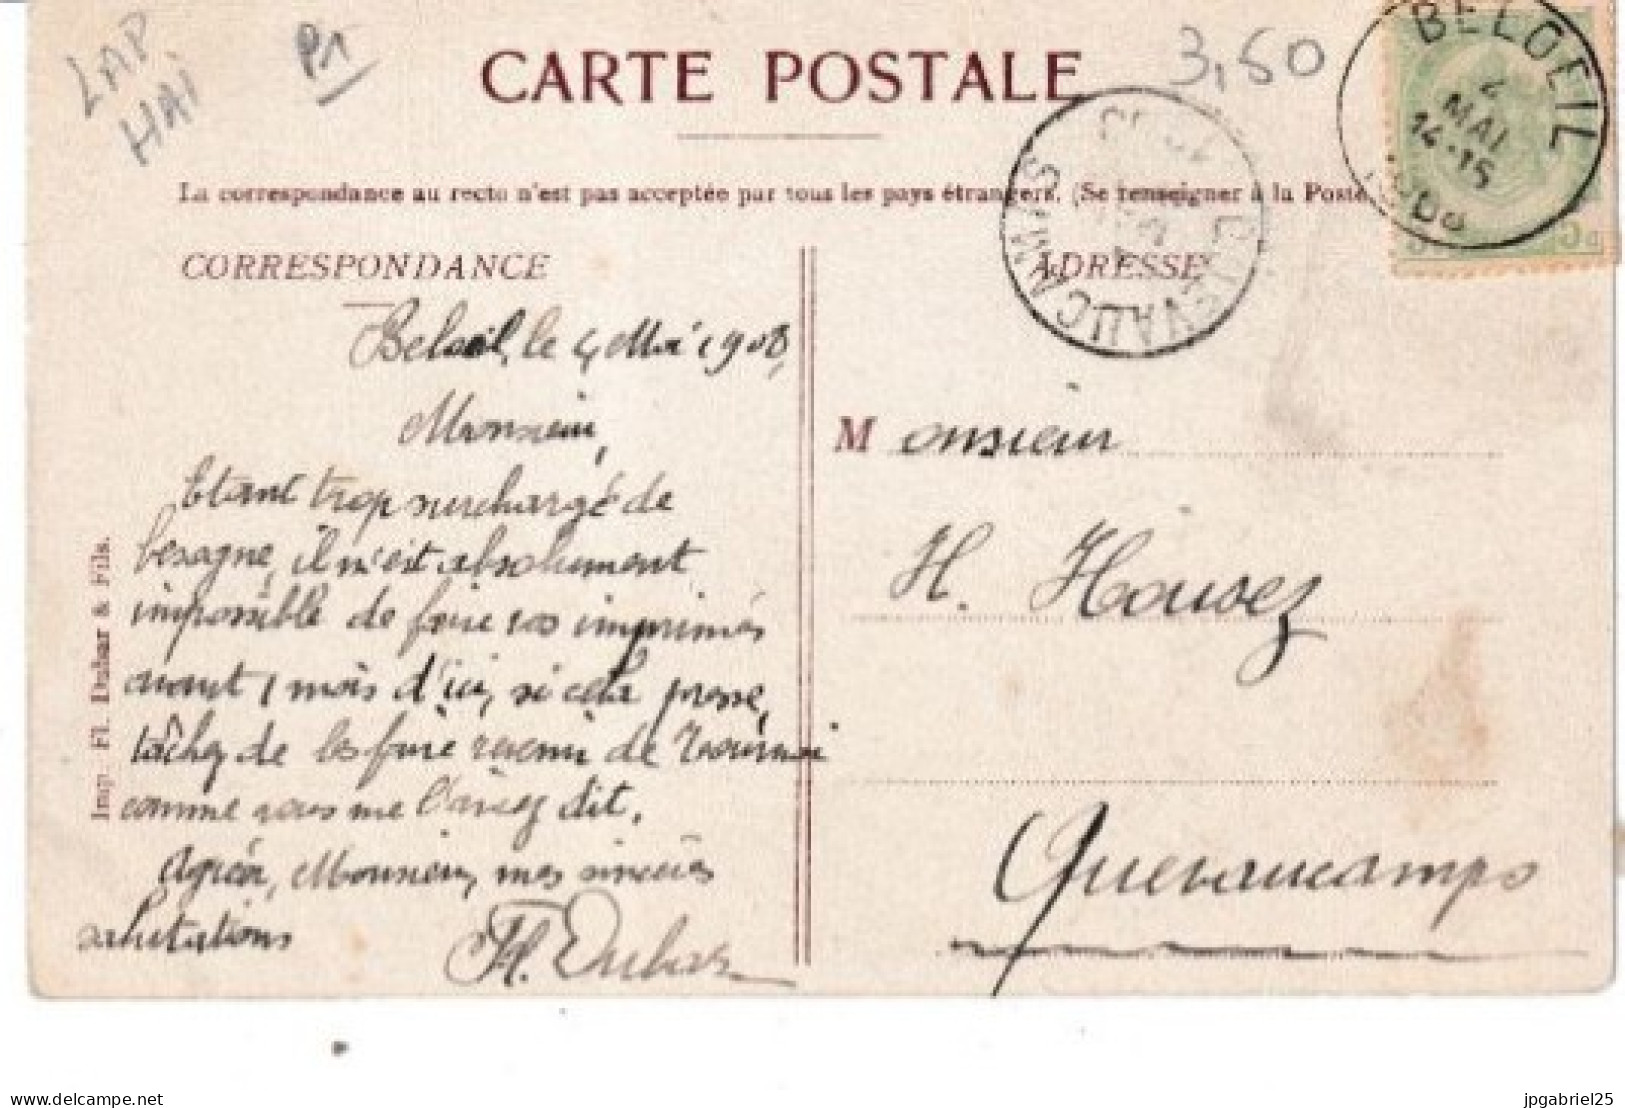 LAP
HAI
P1
CARTE POSTALE
3,50
BELOEIL
MAI
14-15
QUEVAUCAMPS
La correspondance au recto n'est pas acceptée par tous les pays étrangers. (Se renseigner à la Poste
CORRESPONDANCE
ADRESSE
Belœil, le 4 Mai 1908,
Monsieur,
Etant trop surchargé de
besogne, il m'est absolument
impossible de faire vos imprimés
avant 1 mois d'ici, si cela presse,
tâchez de les faire revenir de Tournai
comme vous me l'aviez dit.
Agréez, Monsieur, mes sincères
salutations
Fl. Duhar
Imp. Fl. Duhar & Fils.
Monsieur
H. Houvez
Quevaucamps
delcampe.net
jpgabriel25